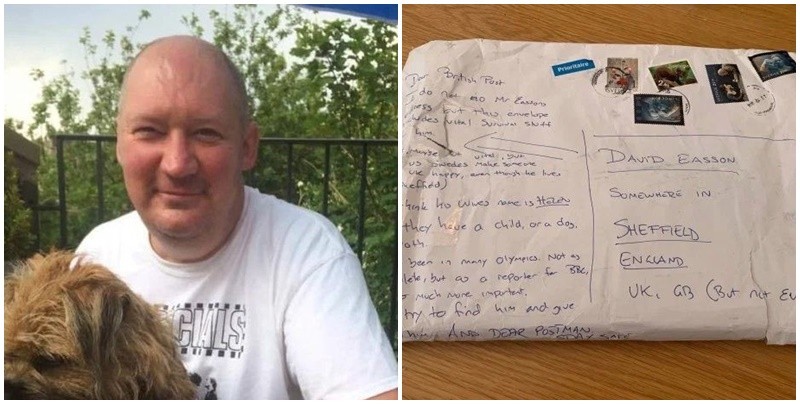 CIALS
Prioritaire
Dear British Post
I do not Mr Easson's
but this envelope
vital survival stuff
him.
vital, but
us Swedes make someone
happy, even though he lives
think his wives name is Helen
they have a child, or a dog,
both.
been in many olympics. Not as
but as a reporter for BBC,
much more important.
try to find him and give
AND DEAR POSTMAN,
STAY SAFE
DAVID EASSON
SOMEWHERE IN
SHEFFIELD
ENGLAND
UK, GB (BUT NOT EU